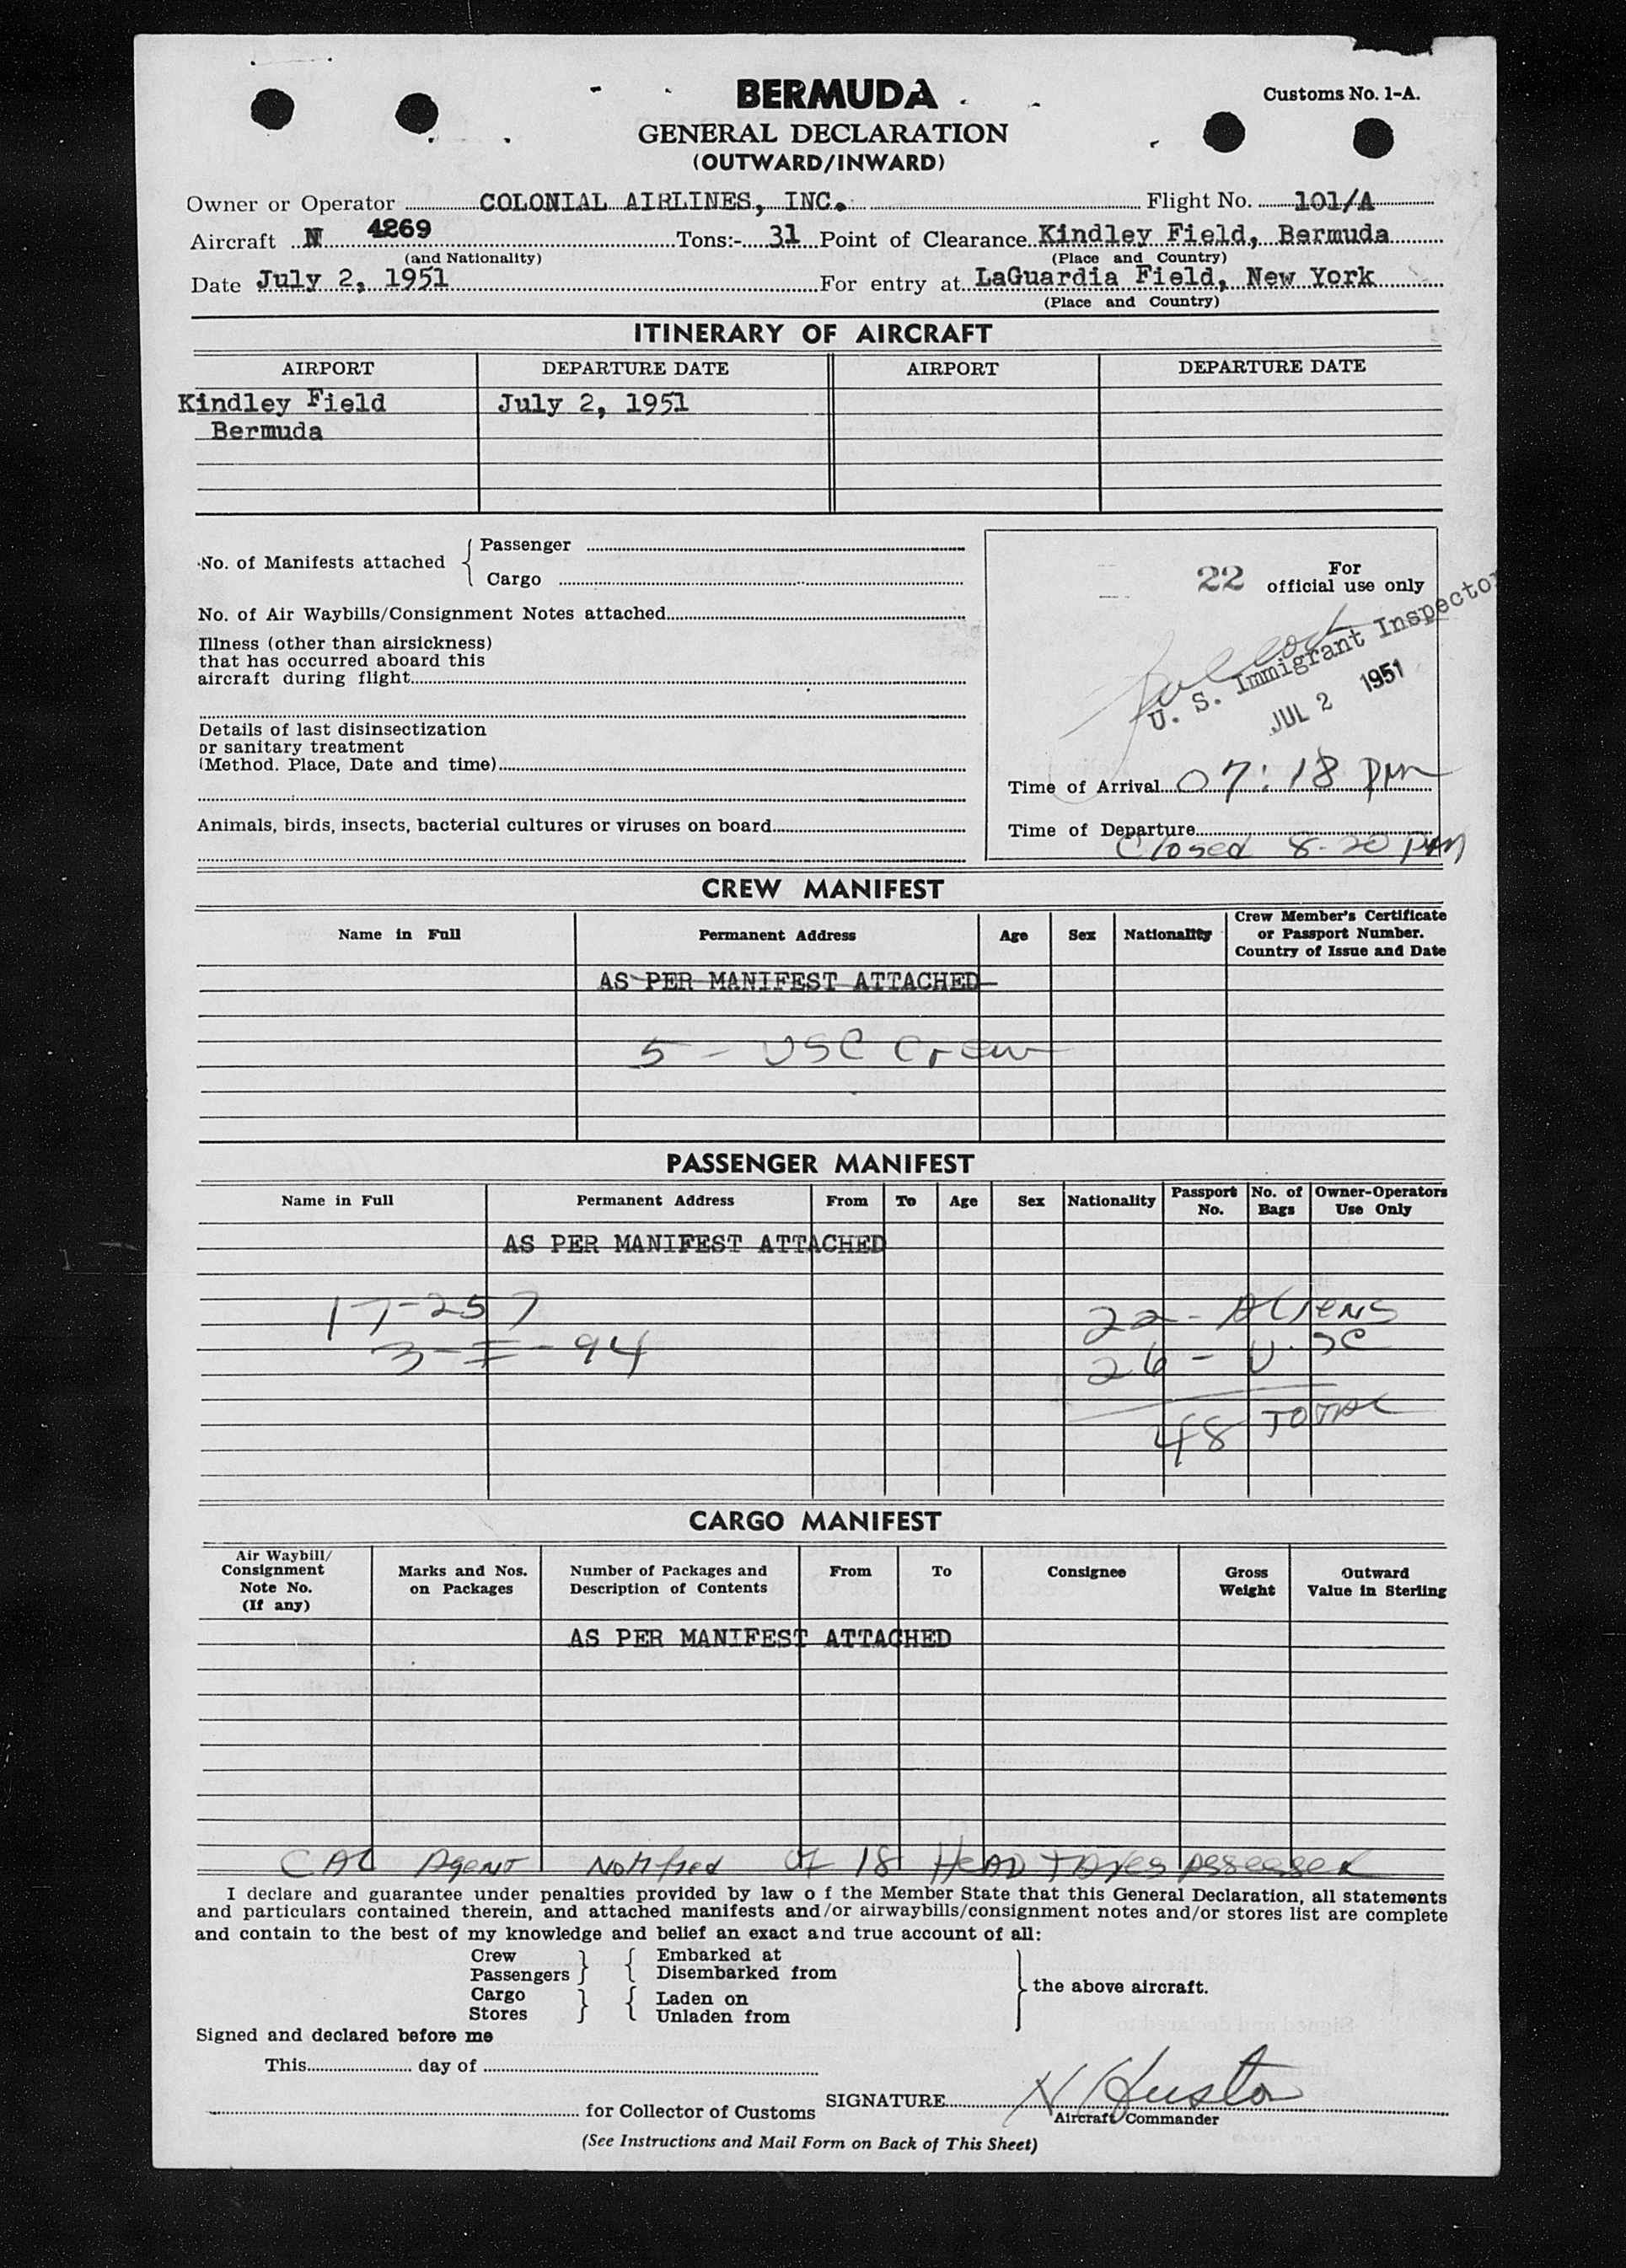 BERMUDA
Customs No. 1-A.
GENERAL DECLARATION
(OUTWARD/INWARD)
Owner or Operator COLONIAL AIRLINES, INC. Flight No. 101/A
Aircraft N 4269 Tons:- 31 Point of Clearance Kindley Field, Bermuda
(and Nationality) (Place and Country)
Date July 2, 1951 For entry at LaGuardia Field, New York
(Place and Country)
ITINERARY OF AIRCRAFT
AIRPORT DEPARTURE DATE AIRPORT DEPARTURE DATE
Kindley Field July 2, 1951
Bermuda
No. of Manifests attached
Passenger
Cargo
No. of Air Waybills/Consignment Notes attached
Illness (other than airsickness)
that has occurred aboard this
aircraft during flight
Details of last disinsectization
or sanitary treatment
(Method. Place, Date and time)
Animals, birds, insects, bacterial cultures or viruses on board
22 For
official use only
U. S. Immigrant Inspector
JUL 2 1951
Time of Arrival 07:18 pm
Time of Departure
Closed 8-20 PM
CREW MANIFEST
Name in Full Permanent Address Age Sex Nationality Crew Member's Certificate
or Passport Number.
Country of Issue and Date
AS PER MANIFEST ATTACHED
5 - USC Crew
PASSENGER MANIFEST
Name in Full Permanent Address From To Age Sex Nationality Passport No. No. of Bags Owner-Operators Use Only
AS PER MANIFEST ATTACHED
17-257 22 - Aliens
3-I-94 26 - U.SC
48 TOTAL
CARGO MANIFEST
Air Waybill/
Consignment
Note No.
(If any)
Marks and Nos.
on Packages
Number of Packages and
Description of Contents
From To Consignee
Gross
Weight
Outward
Value in Sterling
AS PER MANIFEST ATTACHED
CAL Agent Notified of 18 HEAD TAXES Assessed
I declare and guarantee under penalties provided by law o f the Member State that this General Declaration, all statements
and particulars contained therein, and attached manifests and/or airwaybills/consignment notes and/or stores list are complete
and contain to the best of my knowledge and belief an exact and true account of all:
Crew Embarked at
Passengers Disembarked from
the above aircraft.
Cargo Laden on
Stores Unladen from
Signed and declared before me
This day of
for Collector of Customs SIGNATURE N Huston
Aircraft Commander
(See Instructions and Mail Form on Back of This Sheet)